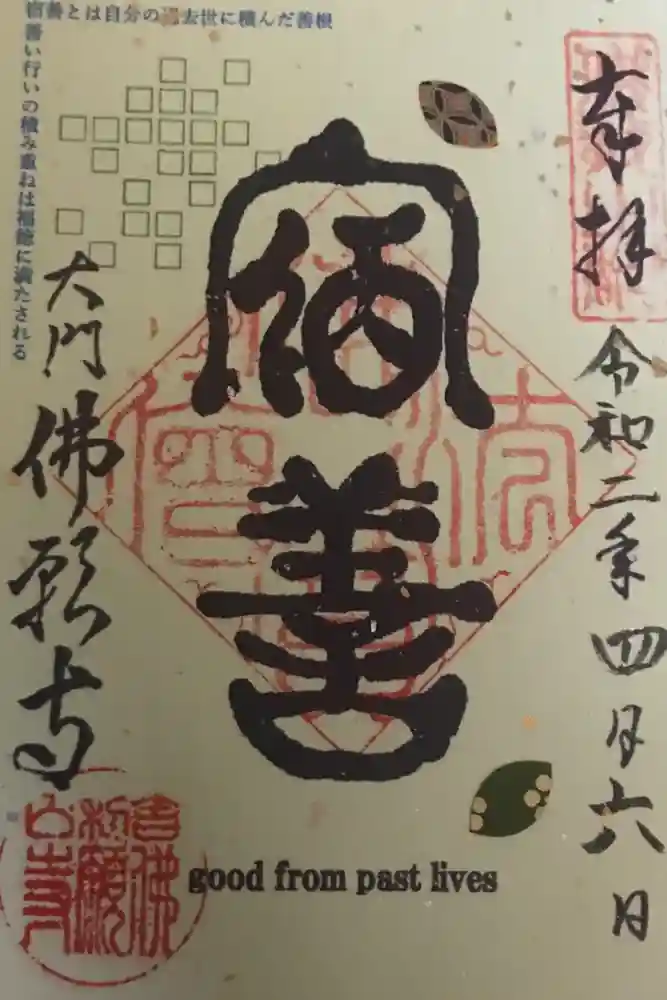 宿善とは自分の過去世に積んだ善根
善い行いの積み重ねは福徳に満たされる
奉拝
令和二年四月六日
宿善
大門
佛願寺
good from past lives